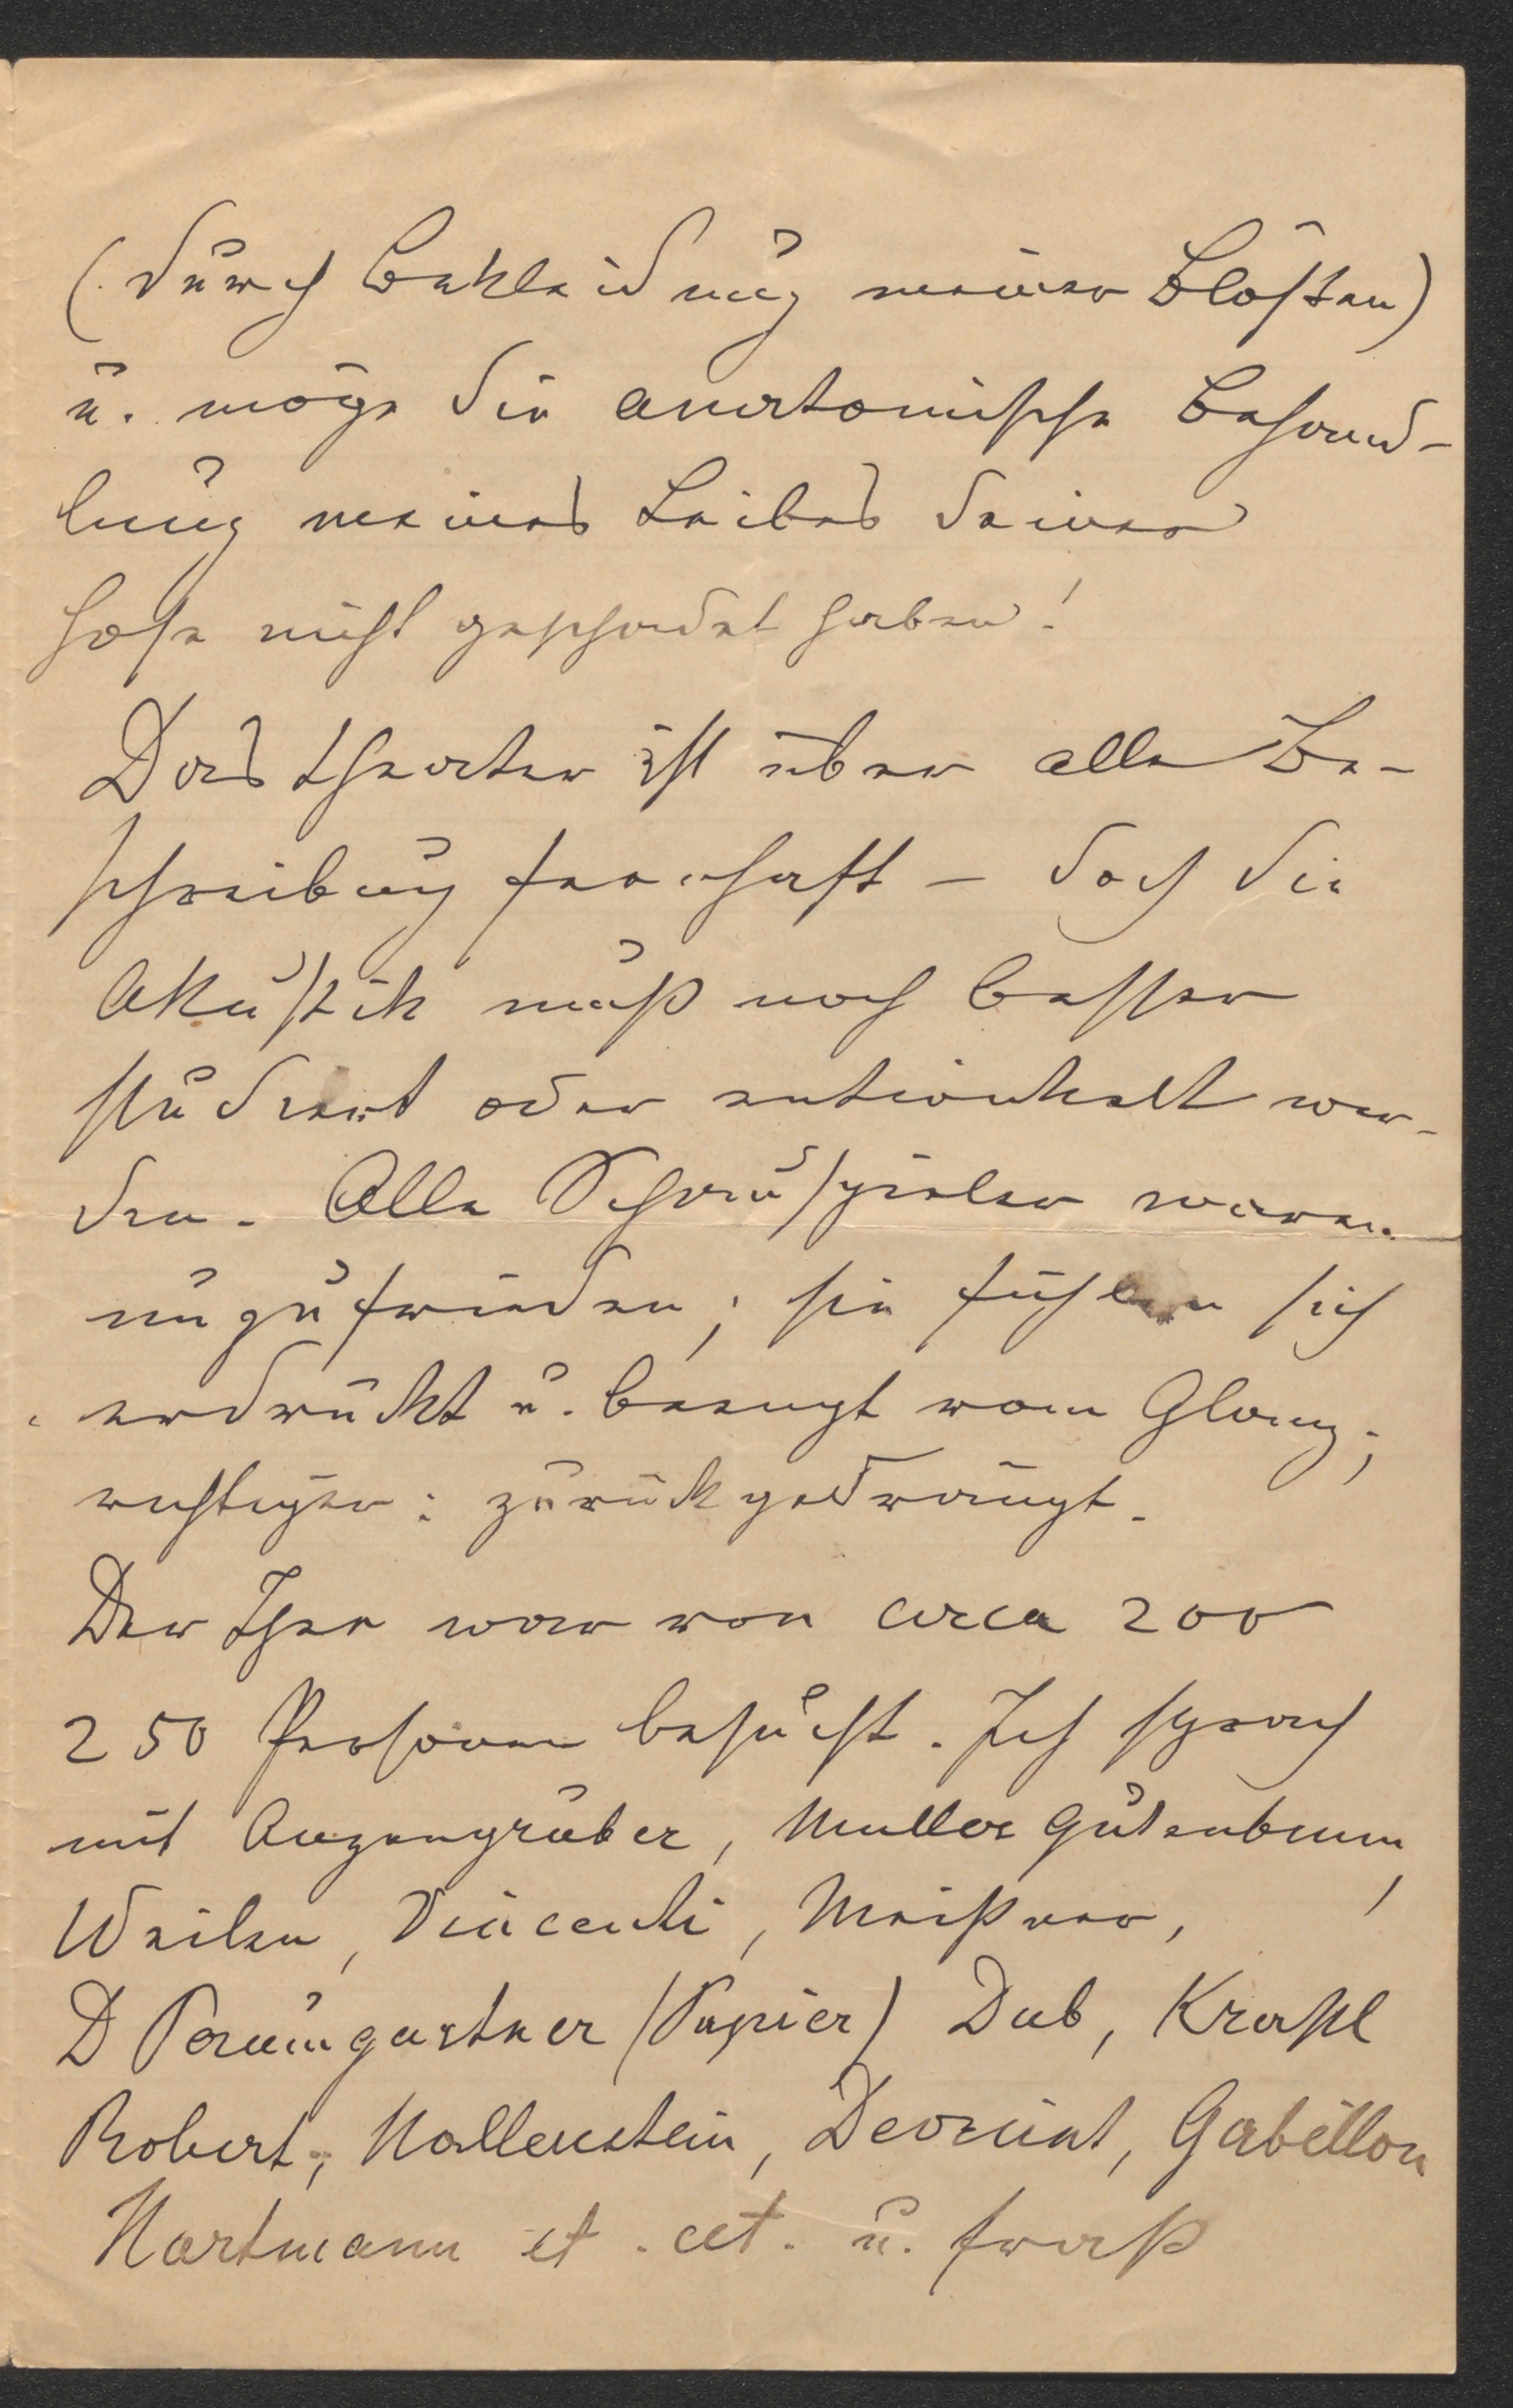 (durch Bekleidung meiner Blößen)
u. möge die anatomische Behand-
lung meines Leibes deiner
Hose nicht geschadet haben!
Das Theater ist über alle Be-
schreibung feenhaft – doch die
Akustik muß noch besser
studiert oder entwickelt wer-
den. Alle Schauspieler waren
unzufrieden; sie fühlen sich
erdrückt u. beengt vom Glanz;
richtiger: zurückgedrängt.
Der Thee war von circa 200
250 Personen besucht. Ich sprach
mit Anzengruber, Müller Gutenbrunn,
Weilen, Vincenti, Meißner,
D Paumgartner (Papier) Dub, Krastl
Robert, Hallenstein, Devrient, Gabillon
Hartmann et. cet. u. fraß